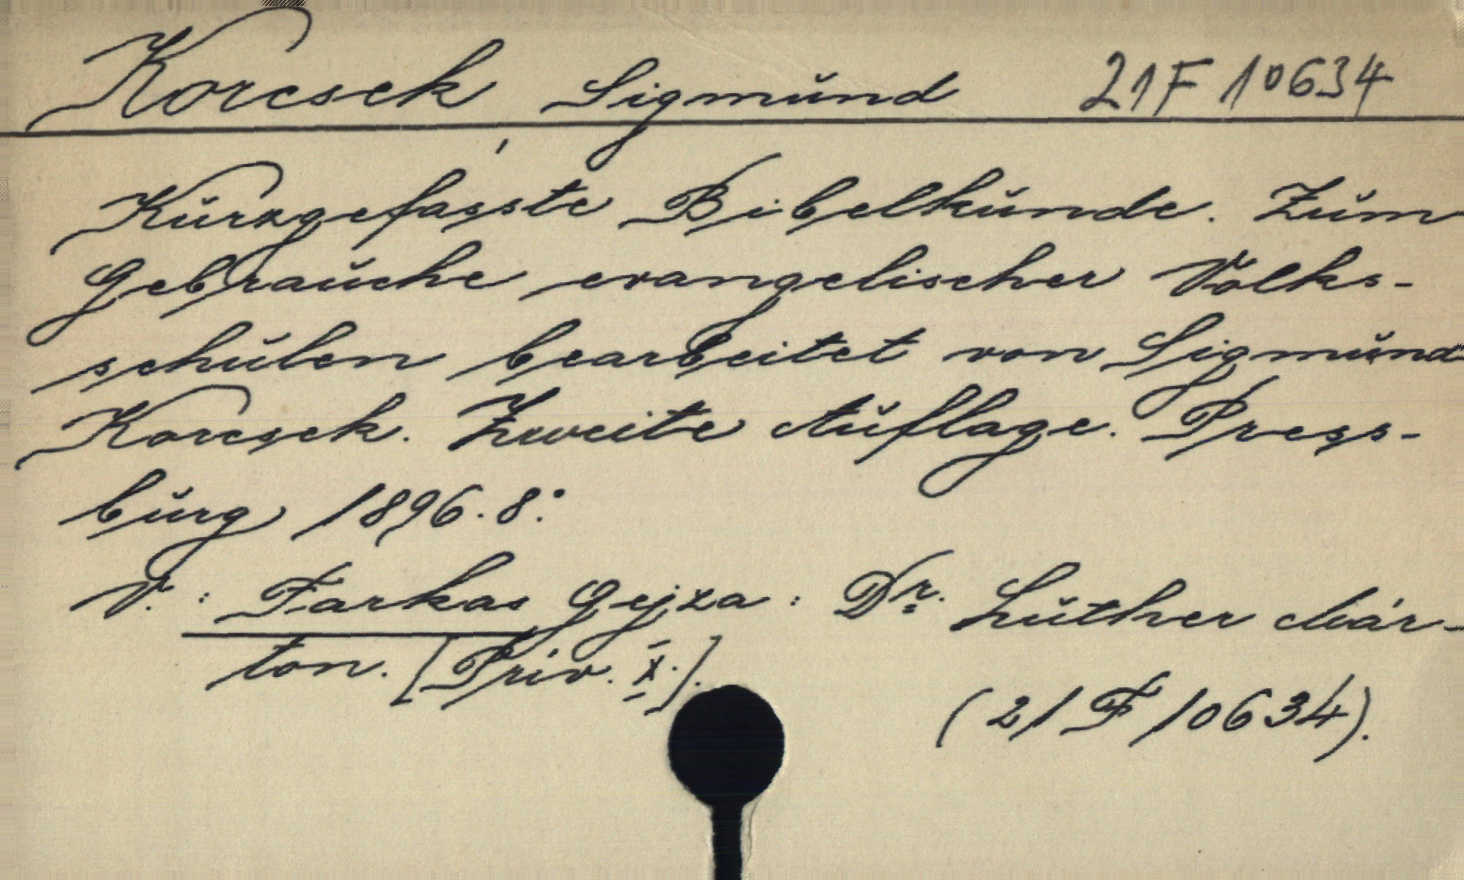 Korcsek Sigmund 21F 10634
Kurzgefasste Bibelkunde. Zum
Gebrauche evangelischer Volks-
schulen bearbeitet von Sigmund
Korcsek. Zweite Auflage. Press-
burg 1896. 8°.
V. : Farkas Gejza : Dr. Luther Már-
ton. [Priv. X.].
(21 F 10634).